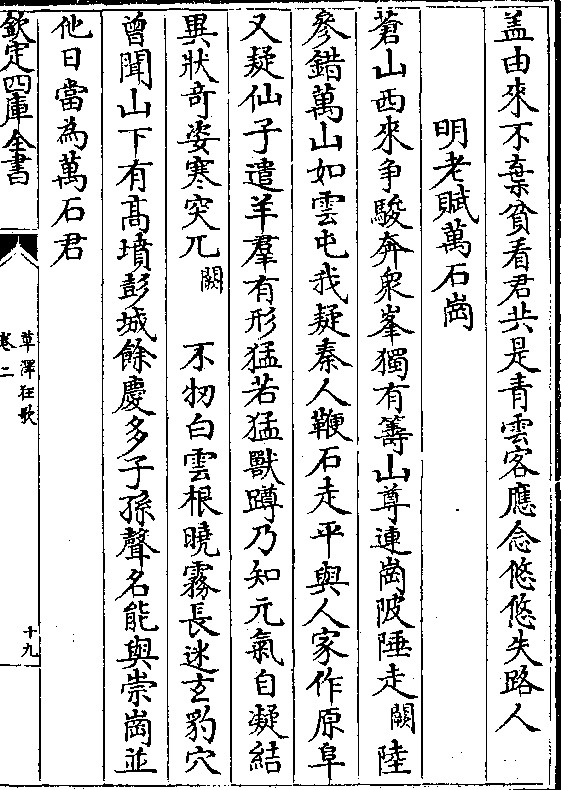 盖由來不棄貧看君共是青雲客應念悠悠失路人
明老賦萬石崗
蒼山西來爭駿奔衆峯獨有籌山尊連崗陂陲走闕陸
參錯萬山如雲屯我疑秦人鞭石走平與人家作原阜
又疑仙子遣羊羣有形猛若猛獸蹲乃知元氣自凝結
異狀奇姿寒突兀闕不礽白雲根曉霧長迷玄豹穴
曾聞山下有髙墳彭城餘慶多子孫聲名能與崇崗並
他日當為萬石君
欽定四庫全書
草澤狂歌
卷二
十九